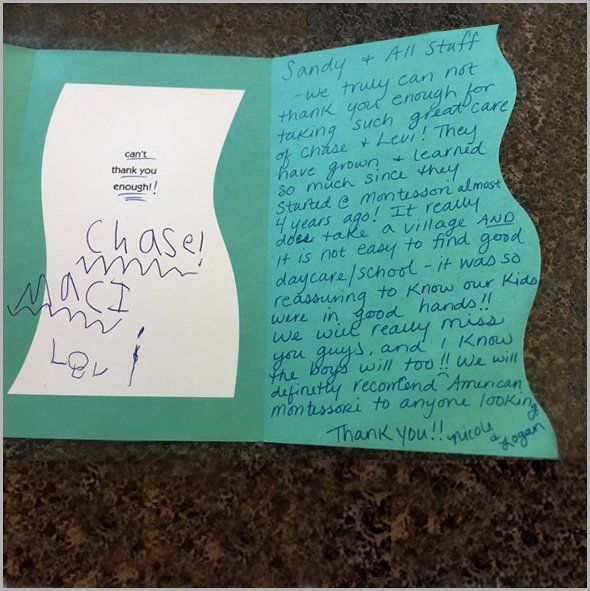 can't
thank you
enough!!
Chase!
MACI
Sandy + All Staff
- we truly can not
thank you enough for
taking such great care
of Chase + Levi! They
have grown + learned
so much since they
Started @ montessori almost
4 years ago! It really
does take a village AND
it is not easy to find good
daycare/school - it was so
reassuring to know our kids
were in good hands!!
We will really miss
you guys, and I know
the boys will too!! We will
definetly recomend American
montessori to anyone looking
Thank you!! Nicole + Logan